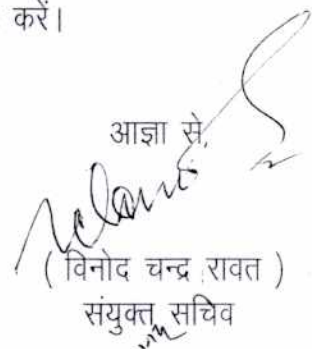 करें।
आज्ञा से,
( विनोद चन्द्र रावत )
संयुक्त सचिव